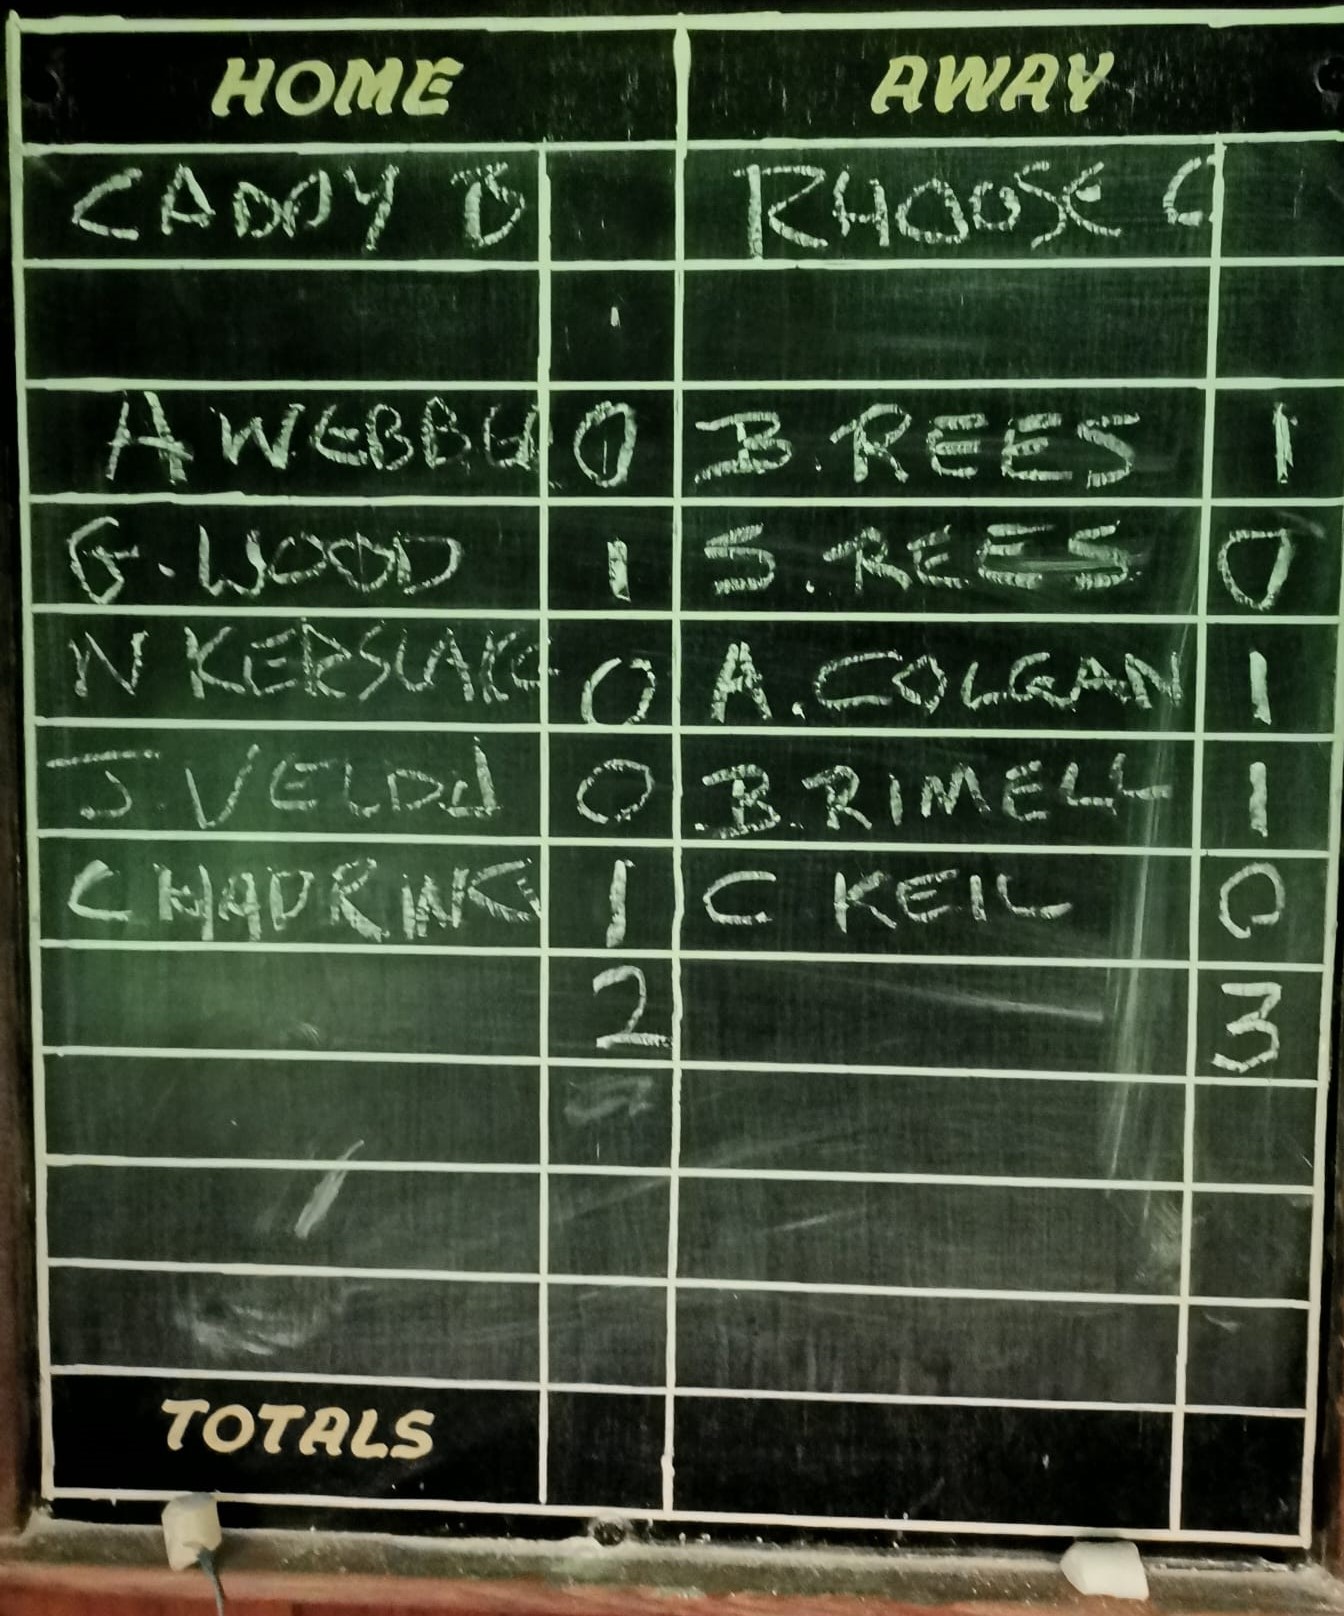 HOME AWAY
CADDY B RHOOSE C
A WEBBER 0 B. REES 1
G. WOOD 1 S. REES 0
N KERSLAKE 0 A. COLGAN 1
J. VELDJ 0 B. RIMELL 1
C HADRING 1 C KEIL 0
2 3
TOTALS